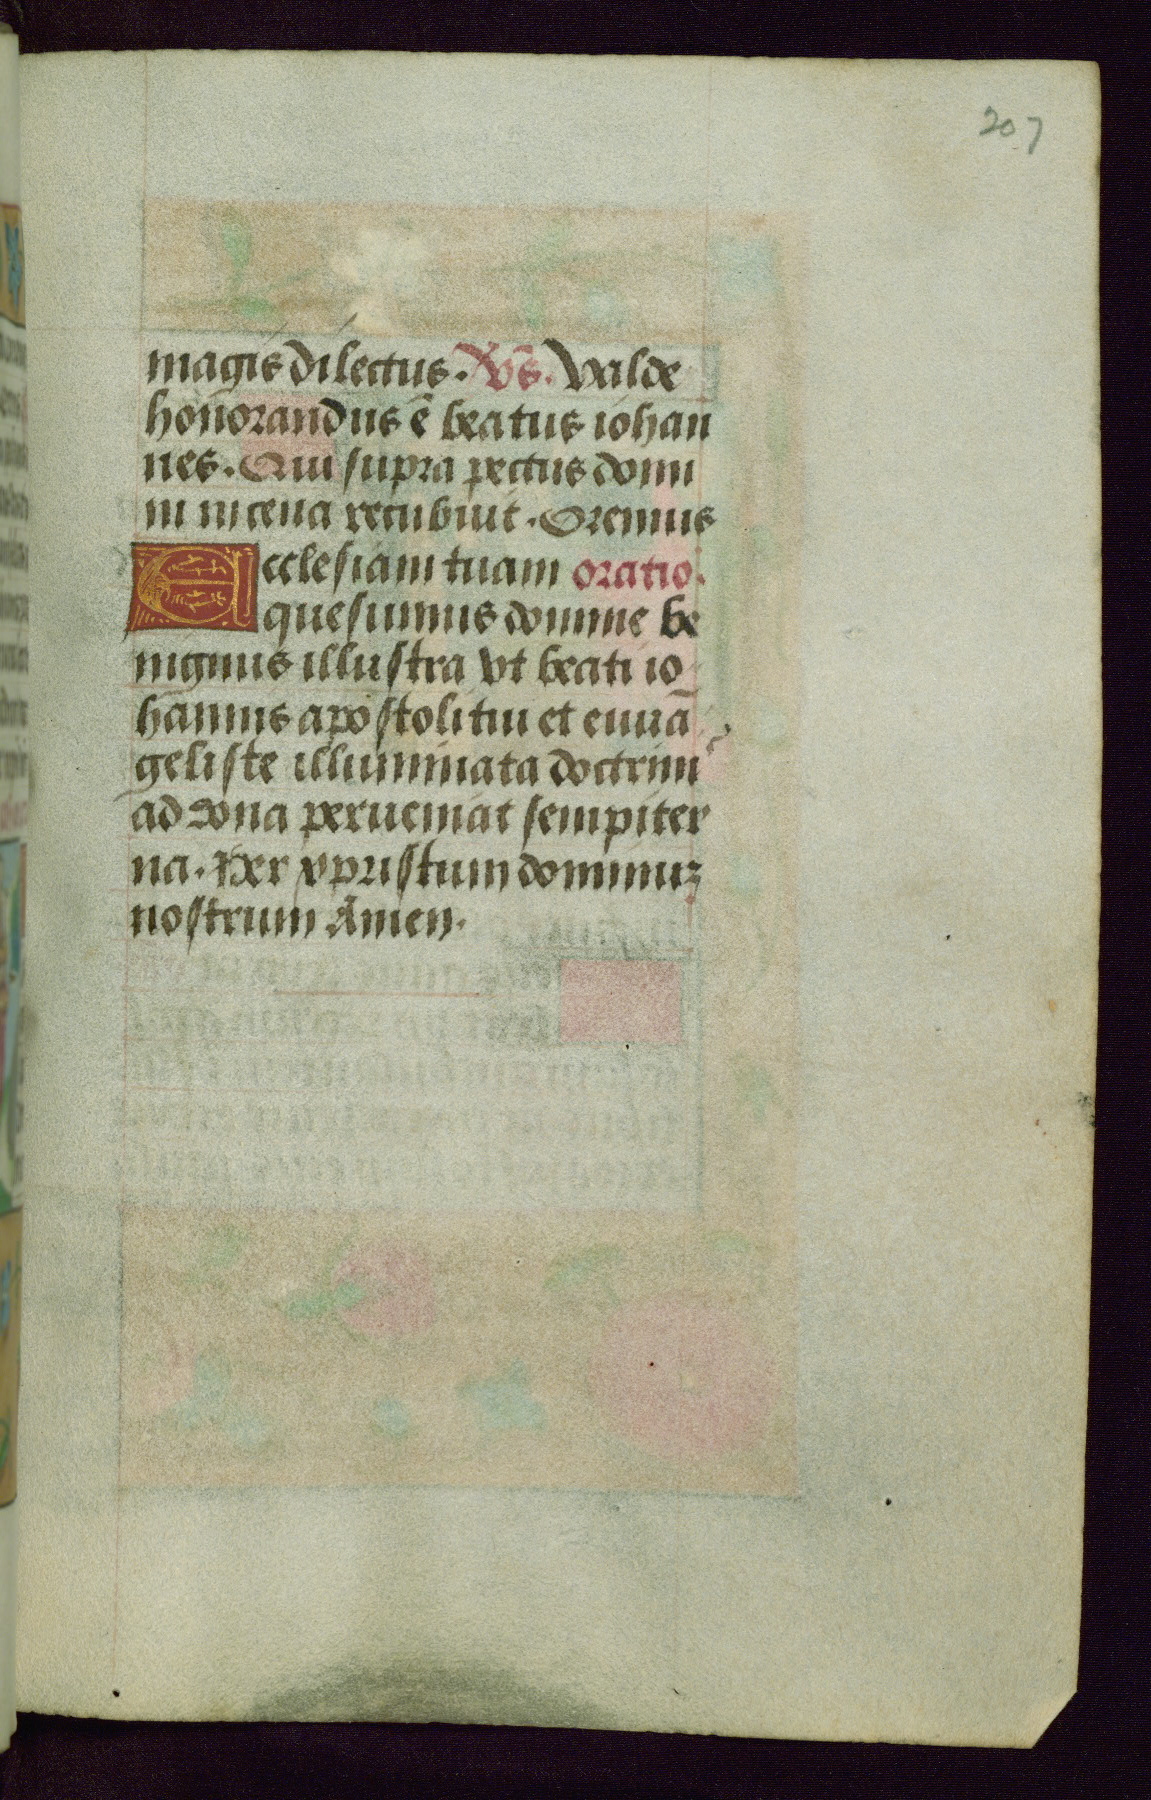 207
magis dilectus. Vs. Valde
honorandus ē beatus iohan
nes. Qui supra pectus domi
ni in cena recubuit. Oremus
Ecclesiam tuam oratio.
quesumus domine be
nignus illustra vt beati io
hannis apostoli tui et euuā
geliste illuminata doctrini
ad dona perueniat sempiter
na. Per xpristum dominuz
nostrum Amen.